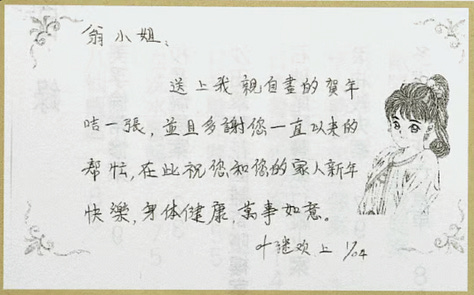 翁小姐：
送上我親自畫的賀年
咭一張，並且多謝您一直以来的
帮忙，在此祝您和您的家人新年
快樂，身体健康，萬事如意。
叶继欢上 1/04